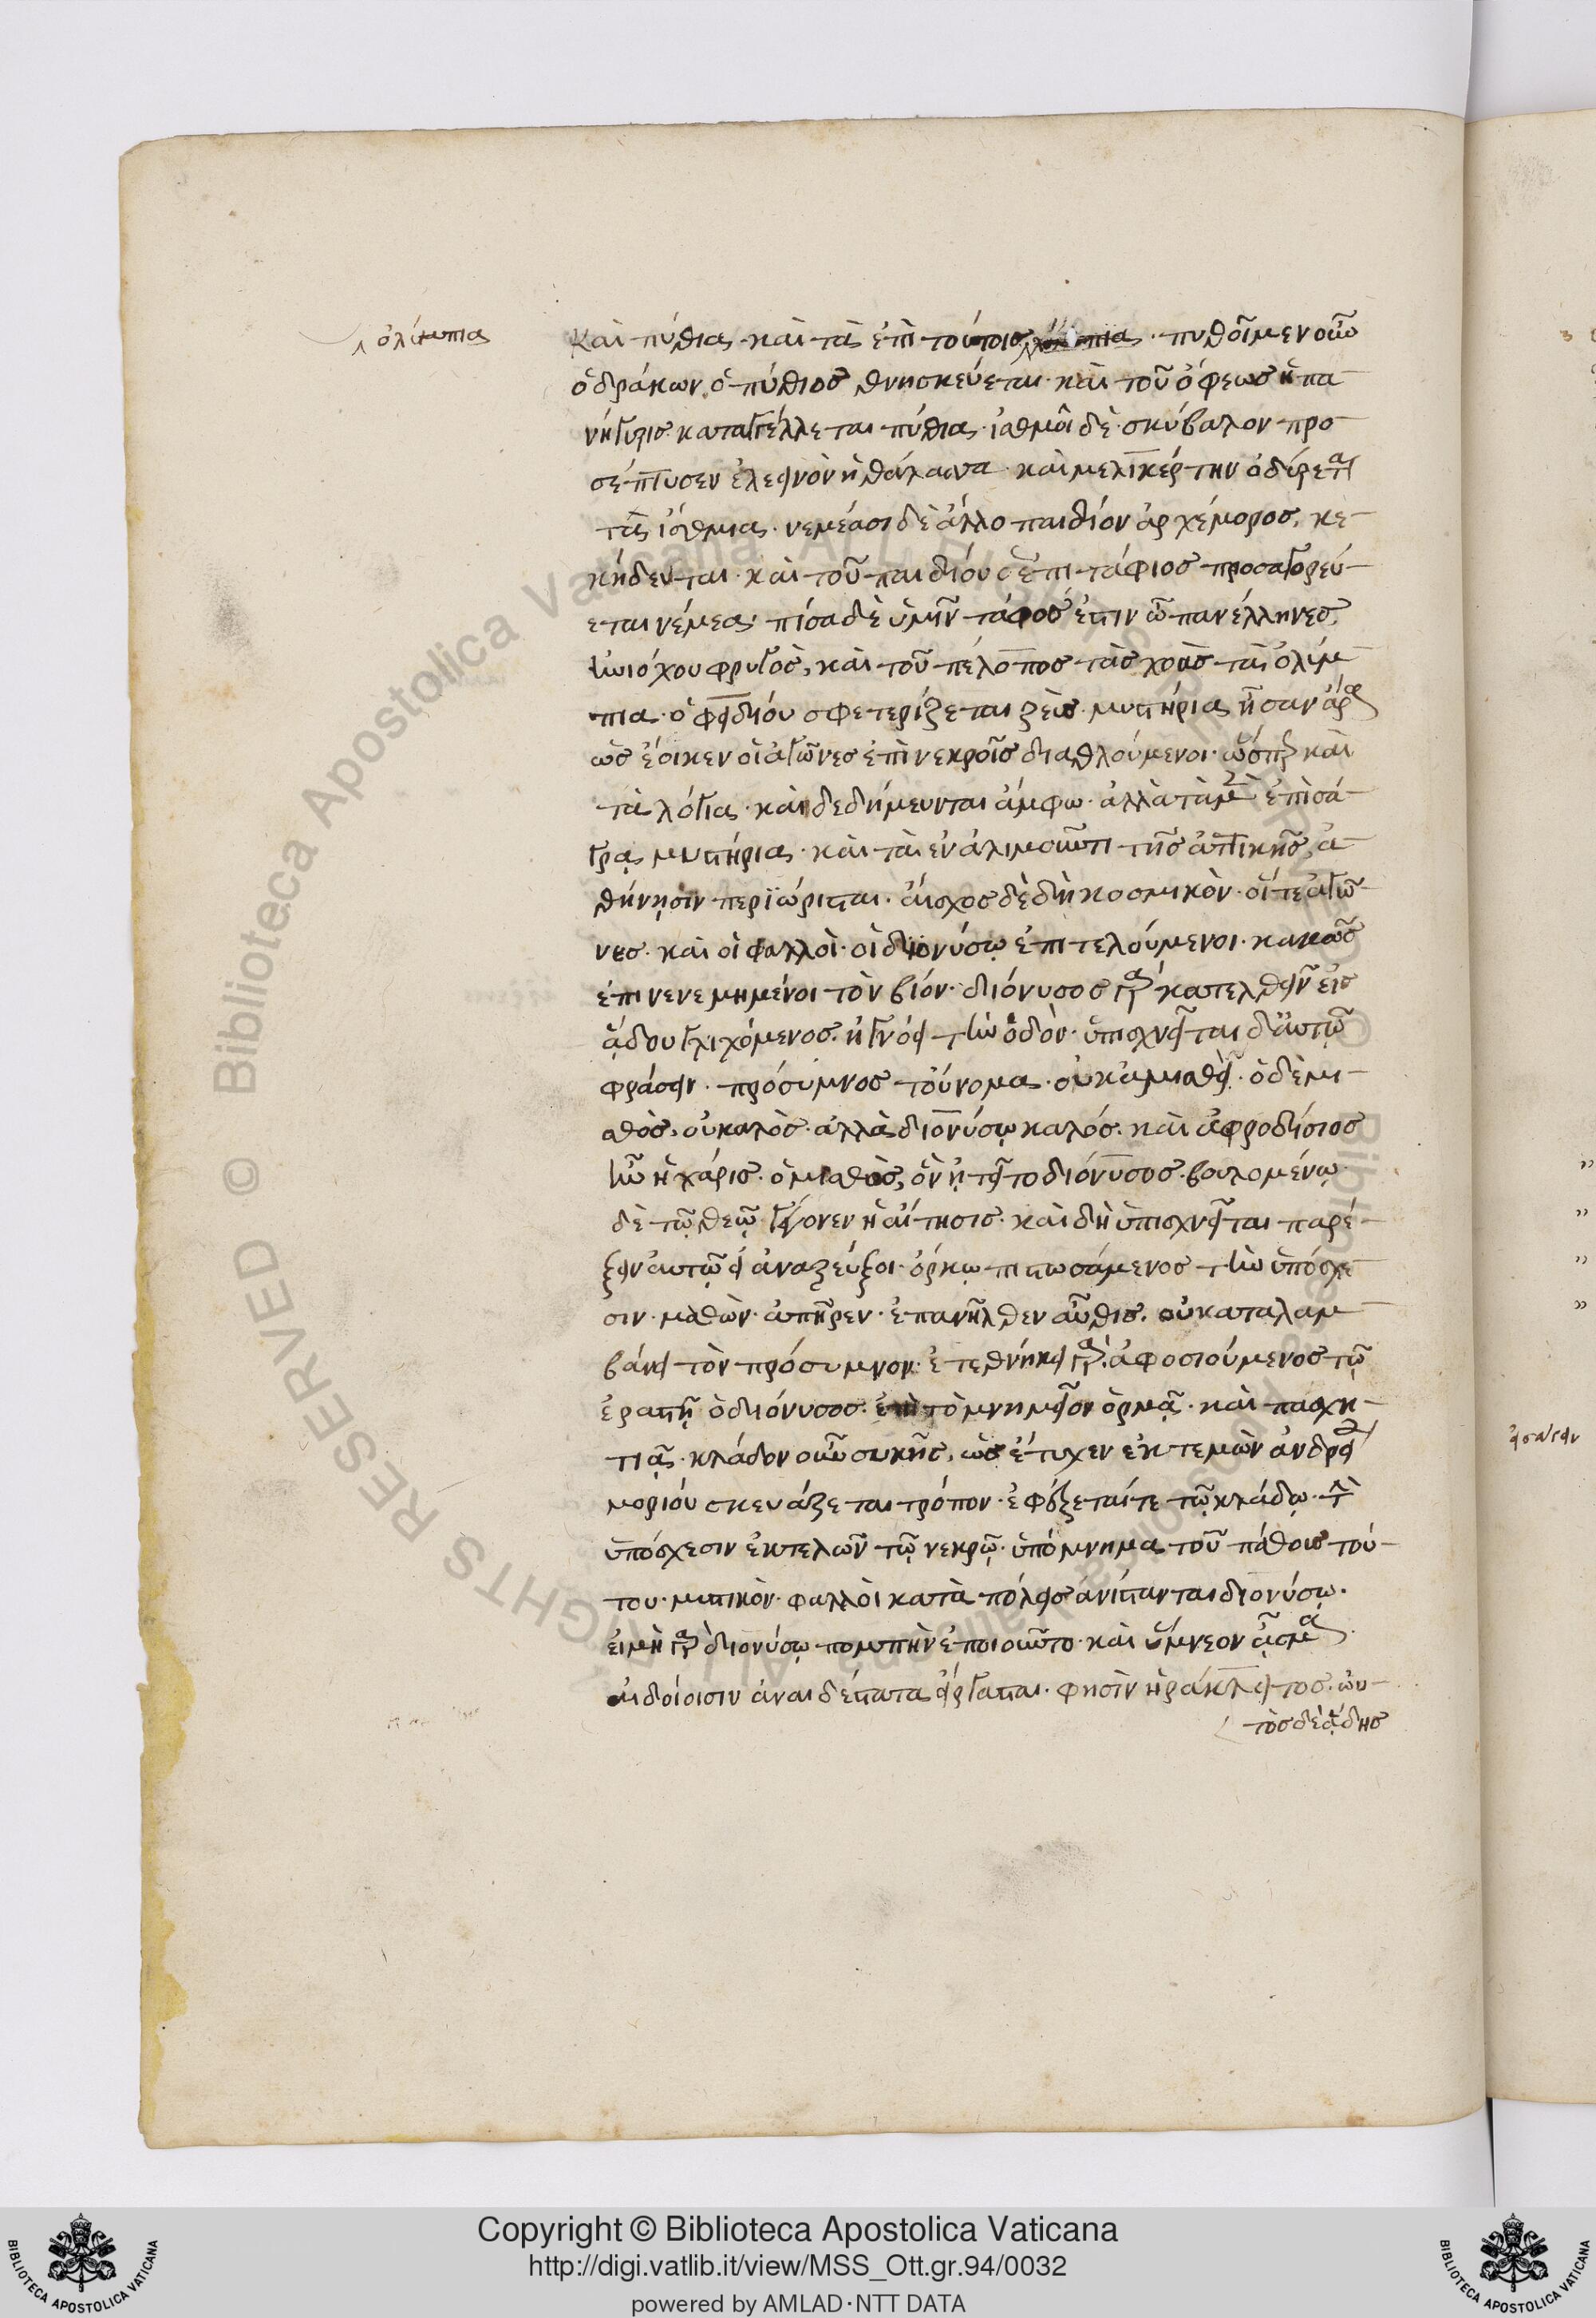 ὀλύμπια
καὶ πύθια καὶ τὰ ἐπὶ τούτοις ὀλύμπια. πυθοῖ μὲν οὖν
ὁ δράκων ὁ πύθιος θρησκεύεται καὶ τοῦ ὄφεως ἡ πα-
νήγυρις καταγγέλλεται πύθια. ἰσθμοῖ δὲ σκύβαλον προ-
σέπτυσεν ἐλεεινὸν ἡ θάλασσα καὶ μελικέρτην ὀδύρεται
τὰ ἴσθμια. νεμέασι δὲ ἄλλο παιδίον ἀρχέμορος κε-
κήδευται καὶ τοῦ παιδίου ὁ ἐπιτάφιος προσαγορεύ-
εται νέμεα. πίσα δὲ ὑμῖν τάφος ἐστὶν ὦ πανέλληνες
ἡνιόχου φρυγὸς, καὶ τοῦ πέλοπος τὰς χοὰς τὰ ὀλύμ-
πια ὁ φειδίου σφετερίζεται ζεύς. μυστήρια ἦσαν ἄρα
ὡς ἔοικεν οἱ ἀγῶνες ἐπὶ νεκροῖς διαθλούμενοι. ὥσπερ καὶ
τὰ λόγια. καὶ δεδήμευνται ἄμφω. ἀλλὰ τὰ μὲν ἐπὶ σά-
γρᾳ μυστήρια. καὶ τὰ ἐν ἀλιμοῦντι τῆς ἀττικῆς, ἀ-
θήνησιν περιώρισται. αἶσχος δὲ δὴ κοσμικὸν οἵ τε ἀγῶ-
νες. καὶ οἱ φαλλοὶ οἱ διονύσῳ ἐπιτελούμενοι. κακῶς
ἐπινενεμημένοι τὸν βίον. διόνυσος γὰρ κατελθεῖν εἰς
ᾅδου γλιχόμενος. ἠγνόει τὴν ὁδόν. ὑπισχνεῖται δ' αὐτῷ
φράσειν. πρόσυμνος τοὔνομα. οὐκ ἀμισθεί. ὁ δὲ μι-
σθὸς, οὐ καλὸς ἀλλὰ διονύσῳ καλός. καὶ ἀφροδίσιος
ἦν ἡ χάρις. ὁ μισθὸς, ὃν ᾐτεῖτο διόνυσος. βουλομένῳ
δὲ τῷ θεῷ γέγονεν ἡ αἴτησις. καὶ δὴ ὑπισχνεῖται παρέ-
ξειν αὐτῷ εἰ ἀναζεύξοι. ὅρκῳ πιστωσάμενος τὴν ὑπόσχε-
σιν. μαθὼν ἀπῆρεν. ἐπανῆλθεν αὖθις. οὐ καταλαμ-
βάνει τὸν πρόσυμνον. ἐτεθνήκει γάρ. ἀφοσιούμενος τῷ
ἐραστῇ ὁ διόνυσος. ἐπὶ τὸ μνημεῖον ὁρμᾷ. καὶ πασχη-
τιᾷ. κλάδον οὖν συκῆς, ὡς ἔτυχεν ἐκτεμὼν ἀνδρείου
μορίου σκευάζεται τρόπον. ἐφέζεταί τε τῷ κλάδῳ. τὴν
ὑπόσχεσιν ἐκτελῶν τῷ νεκρῷ. ὑπόμνημα τοῦ πάθους τού-
του μυστικὸν. φαλλοὶ κατὰ πόλεις ἀνίστανται διονύσῳ.
εἰ μὴ γὰρ διονύσῳ πομπὴν ἐποιοῦντο καὶ ὕμνεον ᾆσμα
αἰδοίοισιν ἀναιδέστατα εἴργασται. φησὶν ἡράκλειτος. ὡυ-
τὸς δὲ ᾅδης
Copyright © Biblioteca Apostolica Vaticana
http://digi.vatlib.it/view/MSS_Ott.gr.94/0032
powered by AMLAD·NTT DATA